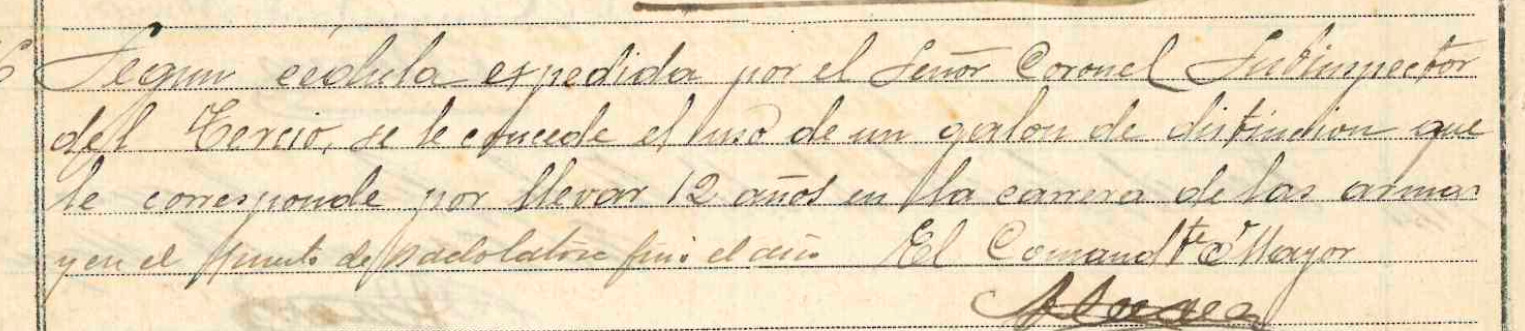 Segun cédula expedida por el Señor Coronel Subinspector
del Tercio, se le concede el uso de un galon de distincion que
le corresponde por llevar 12 años en la carrera de las armas
y en el puesto de fino el año El Comandte Mayor